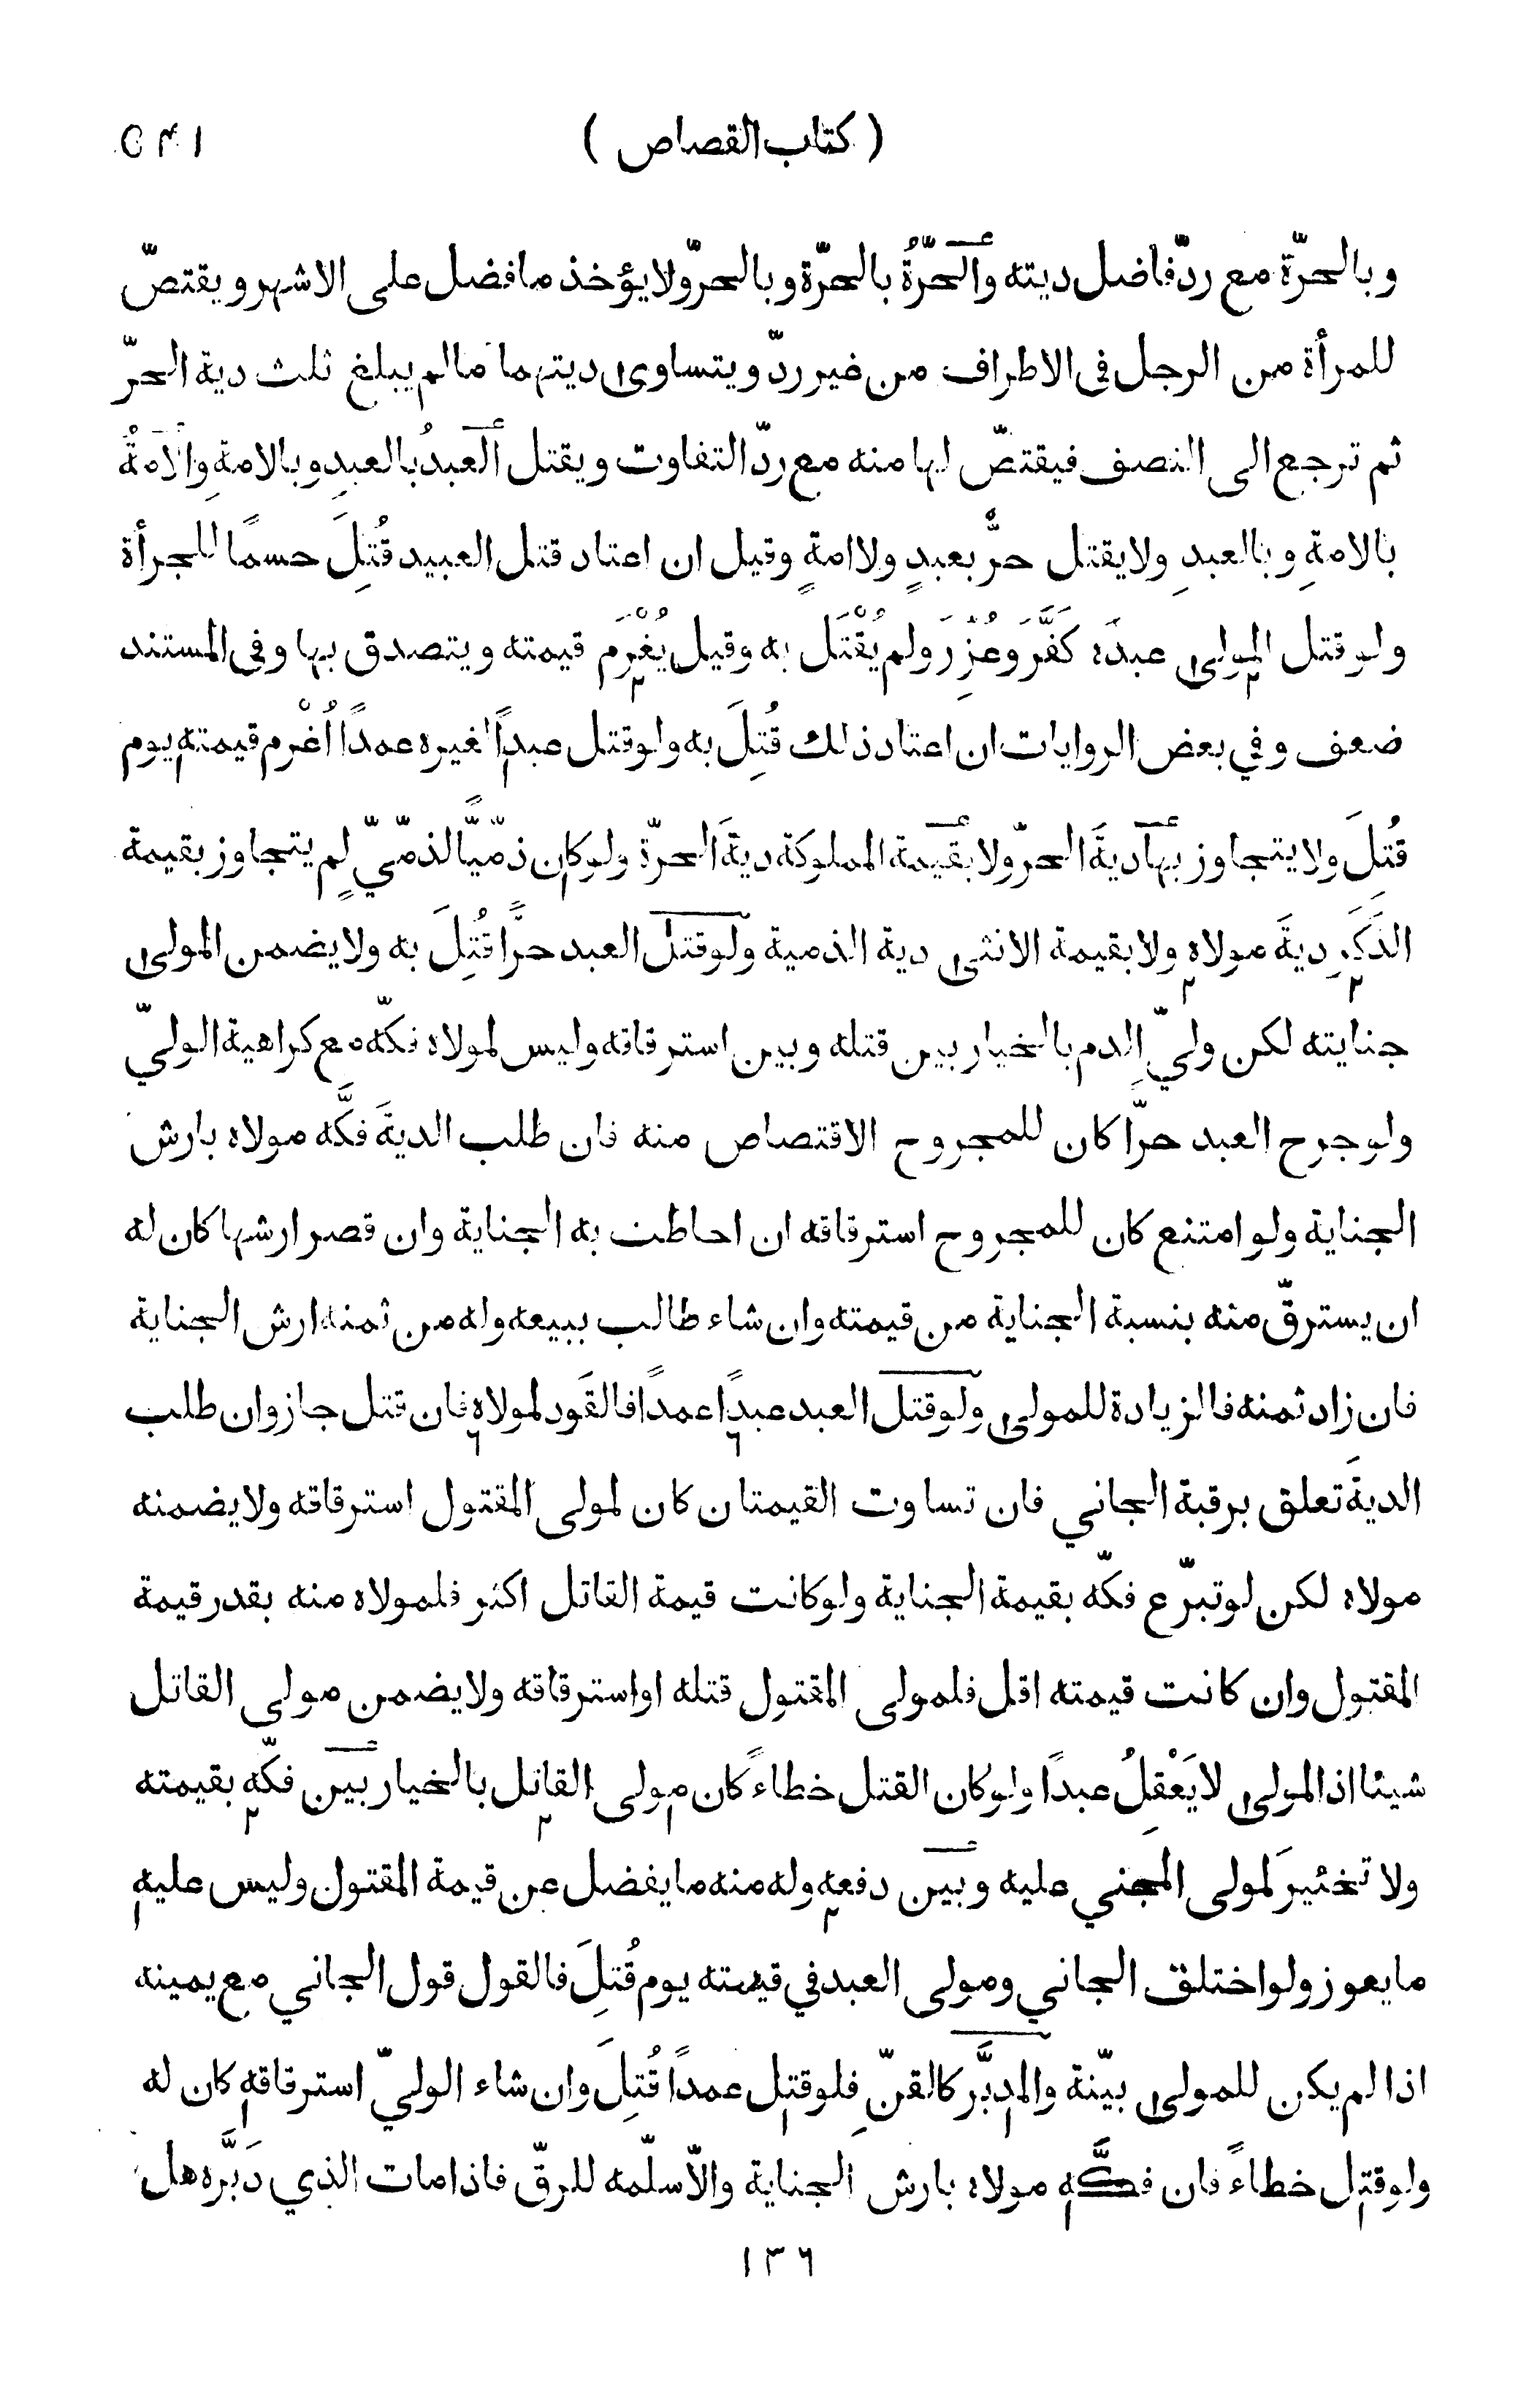 ( كتاب القصاص ) ٥٣١
وبالحرّة مع ردّ فاضل ديته والحّرّةُ بالحرّة وبالحرّ ولا يؤخذ ما فضل على الاشهر ويقتصّ
للمرأة من الرجل فى الاطراف من غير ردّ ويتساوى ديتهما ما لم يبلغ ثلث دية الحرّ
ثم ترجع الى النصف فيقتصّ لها منه مع ردّ التفاوت ويقتل العبدُ بالعبدِ وبالامةِ والامةُ
بالامةِ وبالعبدِ ولا يقتل حرٌّ بعبدٍ ولا امةٍ وقيل ان اعتاد قتل العبيد قُتِلَ حسمًا للجرأة
ولو قتل المولى عبدَه كَفَّرَ وعُزِّرَ ولم يُقْتَل به وقيل يُغْرَم قيمته ويتصدق بها وفى المستند
ضعف وفي بعض الروايات ان اعتاد ذلك قُتِلَ به ولو قتل عبداً لغيره عمداً اُغْرم قيمته يوم
قُتِلَ ولا يتجاوز بها ديةَ الحرّ ولا بقيمة المملوكة ديةَ الحرّة ولو كان ذمّيًّا لذمّيٍّ لم يتجاوز بقيمة
الذَكَرِ ديةَ مولاه ولا بقيمة الانثى دية الذمية ولو قتل العبد حرًّا قُتِلَ به ولا يضمن المولى
جنايته لكن وليّ الدم بالخيار بين قتله وبين استرقاقه وليس لمولاه فكّه مع كراهية الوليّ
ولو جرح العبد حرّا كان للمجروح الاقتصاص منه فان طلب الديةَ فكَّه مولاه بارش
الجناية ولو امتنع كان للمجروح استرقاقه ان احاطت به الجناية وان قصر ارشها كان له
ان يسترقّ منه بنسبة الجناية من قيمته وان شاء طالب ببيعه وله من ثمنه ارش الجناية
فان زاد ثمنه فالزيادة للمولى ولو قتل العبد عبداً عمداً فالقَود لمولاه فان قتل جاز وان طلب
الديةَ تعلق برقبة الجاني فان تساوت القيمتان كان لمولى المقتول استرقاقه ولا يضمنه
مولاه لكن لو تبرّع فكّه بقيمة الجناية ولو كانت قيمة القاتل اكثر فلمولاه منه بقدر قيمة
المقتول وان كانت قيمته اقل فلمولى المقتول قتله او استرقاقه ولا يضمن مولى القاتل
شيئا اذ المولى لا يَعْقِلُ عبداً ولو كان القتل خطاءً كان مولى القاتل بالخيار بين فكّه بقيمته
ولا تخئيرَ لمولى المجني عليه وبين دفعه وله منه ما يفضل عن قيمة المقتول وليس عليه
ما يعوز ولو اختلق الجاني ومولى العبد في قيمته يوم قُتِلَ فالقول قول الجاني مع يمينه
اذا لم يكن للمولى بيّنة والمدبَّر كالقنّ فلو قتل عمداً قُتِلَ وان شاء الوليّ استرقاقه كان له
ولو قتل خطاءً فان فكَّه مولاه بارش الجناية والاّ سلّمه للرقّ فاذا مات الذي دَبَّره هل
١٣٦